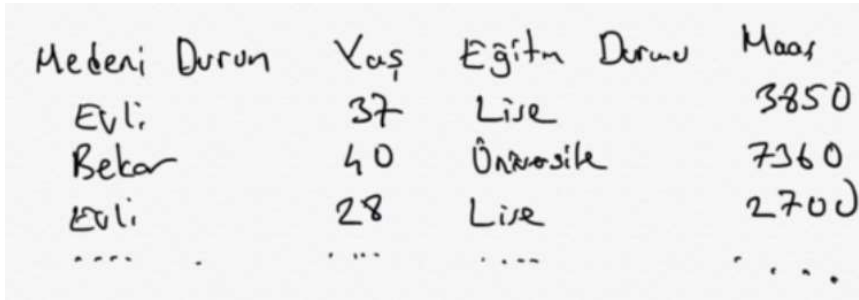 Medeni Durum Yaş Eğitim Durumu Maaş
Evli 37 Lise 3850
Bekar 40 Üniversite 7360
Evli 28 Lise 2700
.... . .... .... ....